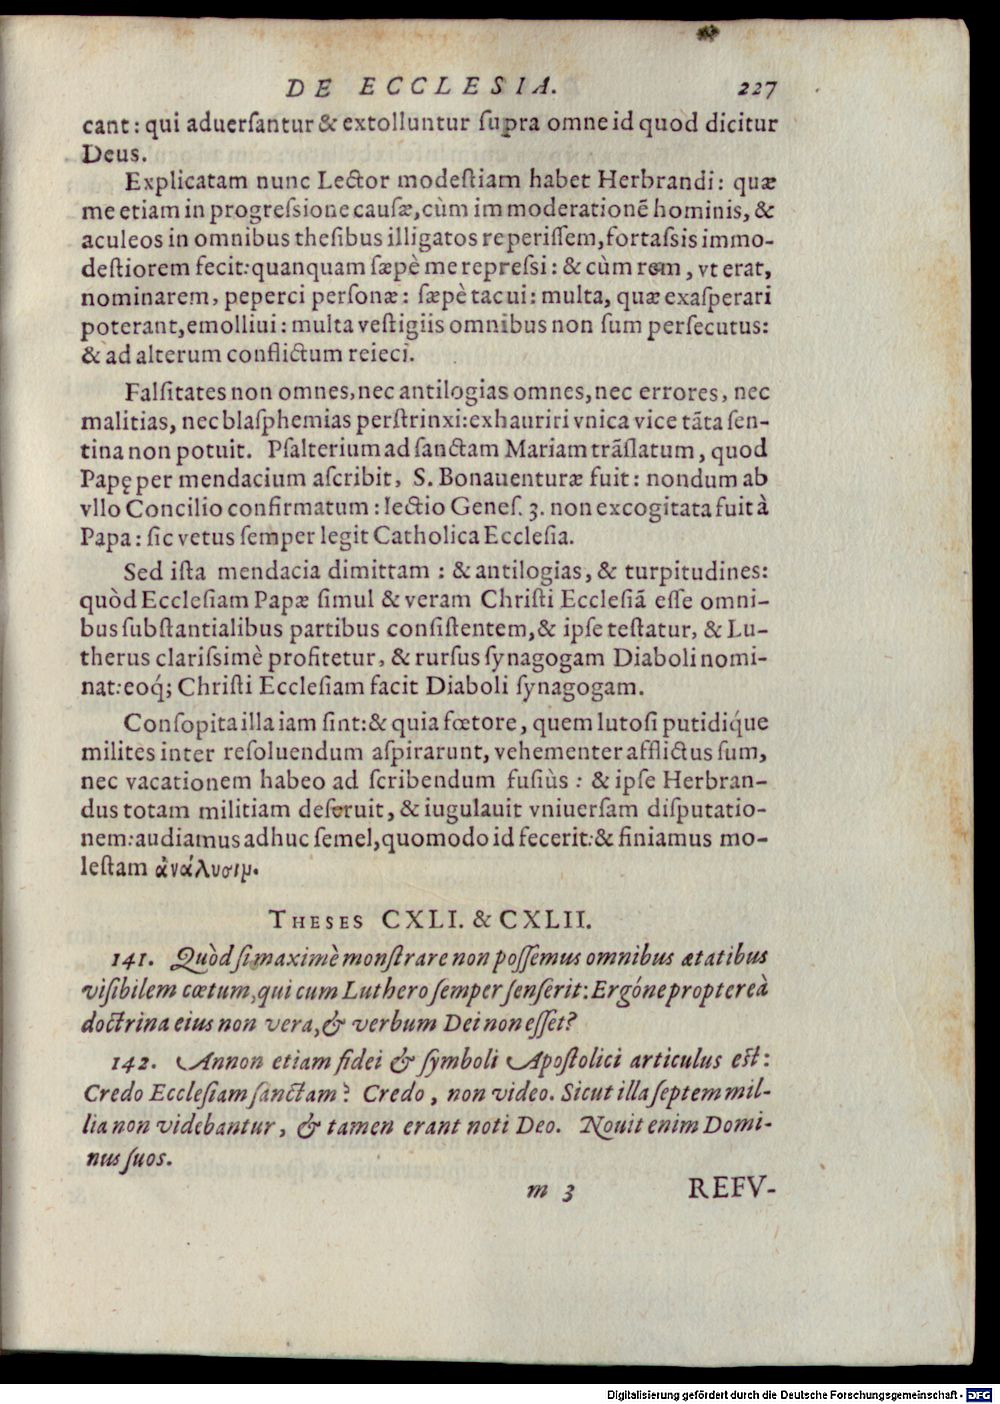 DE ECCLESIA. 227
cant: qui aduerſantur & extolluntur ſupra omne id quod dicitur
Deus.
Explicatam nunc Lector modeſtiam habet Herbrandi: quæ
me etiam in progreſsione cauſæ, cùm immoderationē hominis, &
aculeos in omnibus theſibus illigatos reperiſſem, fortaſsis immo-
deſtiorem fecit: quanquam ſæpè me repreſsi: & cùm rem, vt erat,
nominarem, peperci perſonæ: ſæpè tacui: multa, quæ exaſperari
poterant, emolliui: multa veſtigiis omnibus non ſum perſecutus:
& ad alterum conflictum reieci.
Falſitates non omnes, nec antilogias omnes, nec errores, nec
malitias, nec blaſphemias perſtrinxi: exhauriri vnica vice tāta ſen-
tina non potuit. Pſalterium ad ſanctam Mariam trāſlatum, quod
Papę per mendacium aſcribit, S. Bonauenturæ fuit: nondum ab
vllo Concilio confirmatum: lectio Geneſ. 3. non excogitata fuit à
Papa: ſic vetus ſemper legit Catholica Eccleſia.
Sed iſta mendacia dimittam: & antilogias, & turpitudines:
quòd Eccleſiam Papæ ſimul & veram Chriſti Eccleſiā eſſe omni-
bus ſubſtantialibus partibus conſiſtentem, & ipſe teſtatur, & Lu-
therus clariſsimè profitetur, & rurſus ſynagogam Diaboli nomi-
nat: eoq́; Chriſti Eccleſiam facit Diaboli ſynagogam.
Conſopita illa iam ſint: & quia fœtore, quem lutoſi putidiq́ue
milites inter reſoluendum aſpirarunt, vehementer afflictus ſum,
nec vacationem habeo ad ſcribendum fuſiùs: & ipſe Herbran-
dus totam militiam deſeruit, & iugulauit vniuerſam diſputatio-
nem: audiamus adhuc ſemel, quomodo id fecerit: & finiamus mo-
leſtam ἀνάλυσιμ.
THESES CXLI. & CXLII.
141. Quòd ſi maximè monſtrare non poſſemus omnibus ætatibus
viſibilem cœtum, qui cum Luthero ſemper ſenſerit: Ergóne proptereà
doctrina eius non vera, & verbum Dei non eſſet?
142. Annon etiam fidei & ſymboli Apoſtolici articulus eſt:
Credo Eccleſiam ſanctam? Credo, non video. Sicut illa ſeptem mil-
lia non videbantur, & tamen erant noti Deo. Nouit enim Domi-
nus ſuos.
m 3 REFV-
Digitalisierung gefördert durch die Deutsche Forschungsgemeinschaft - DFG